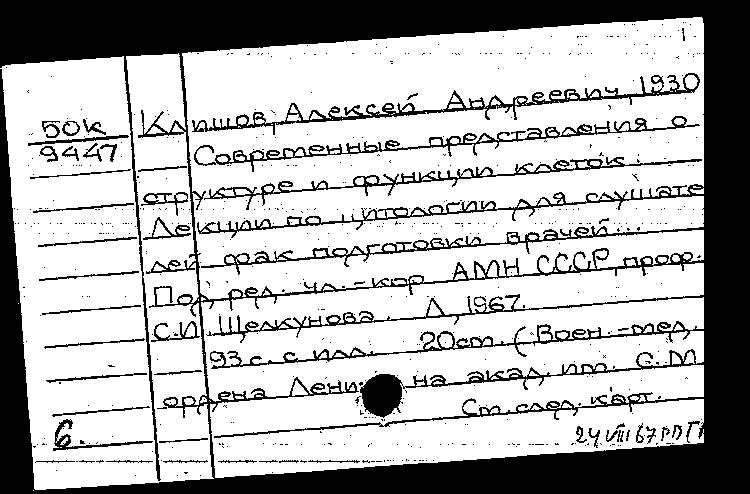 1
50К Клишов, Алексей Андреевич, 1930
9447 Современные представления о
структуре и функции клеток.
Лекции по цитологии для слушате
лей фак подготовки врачей...
Под ред. чл.-кор АМН СССР, проф.
С.И. Щелкунова. Л, 1967.
93 с. с илл. 20 см. (Воен.-мед.
ордена Лени на акад. им. С.М
См. след. карт.
6.
24 VIII 67